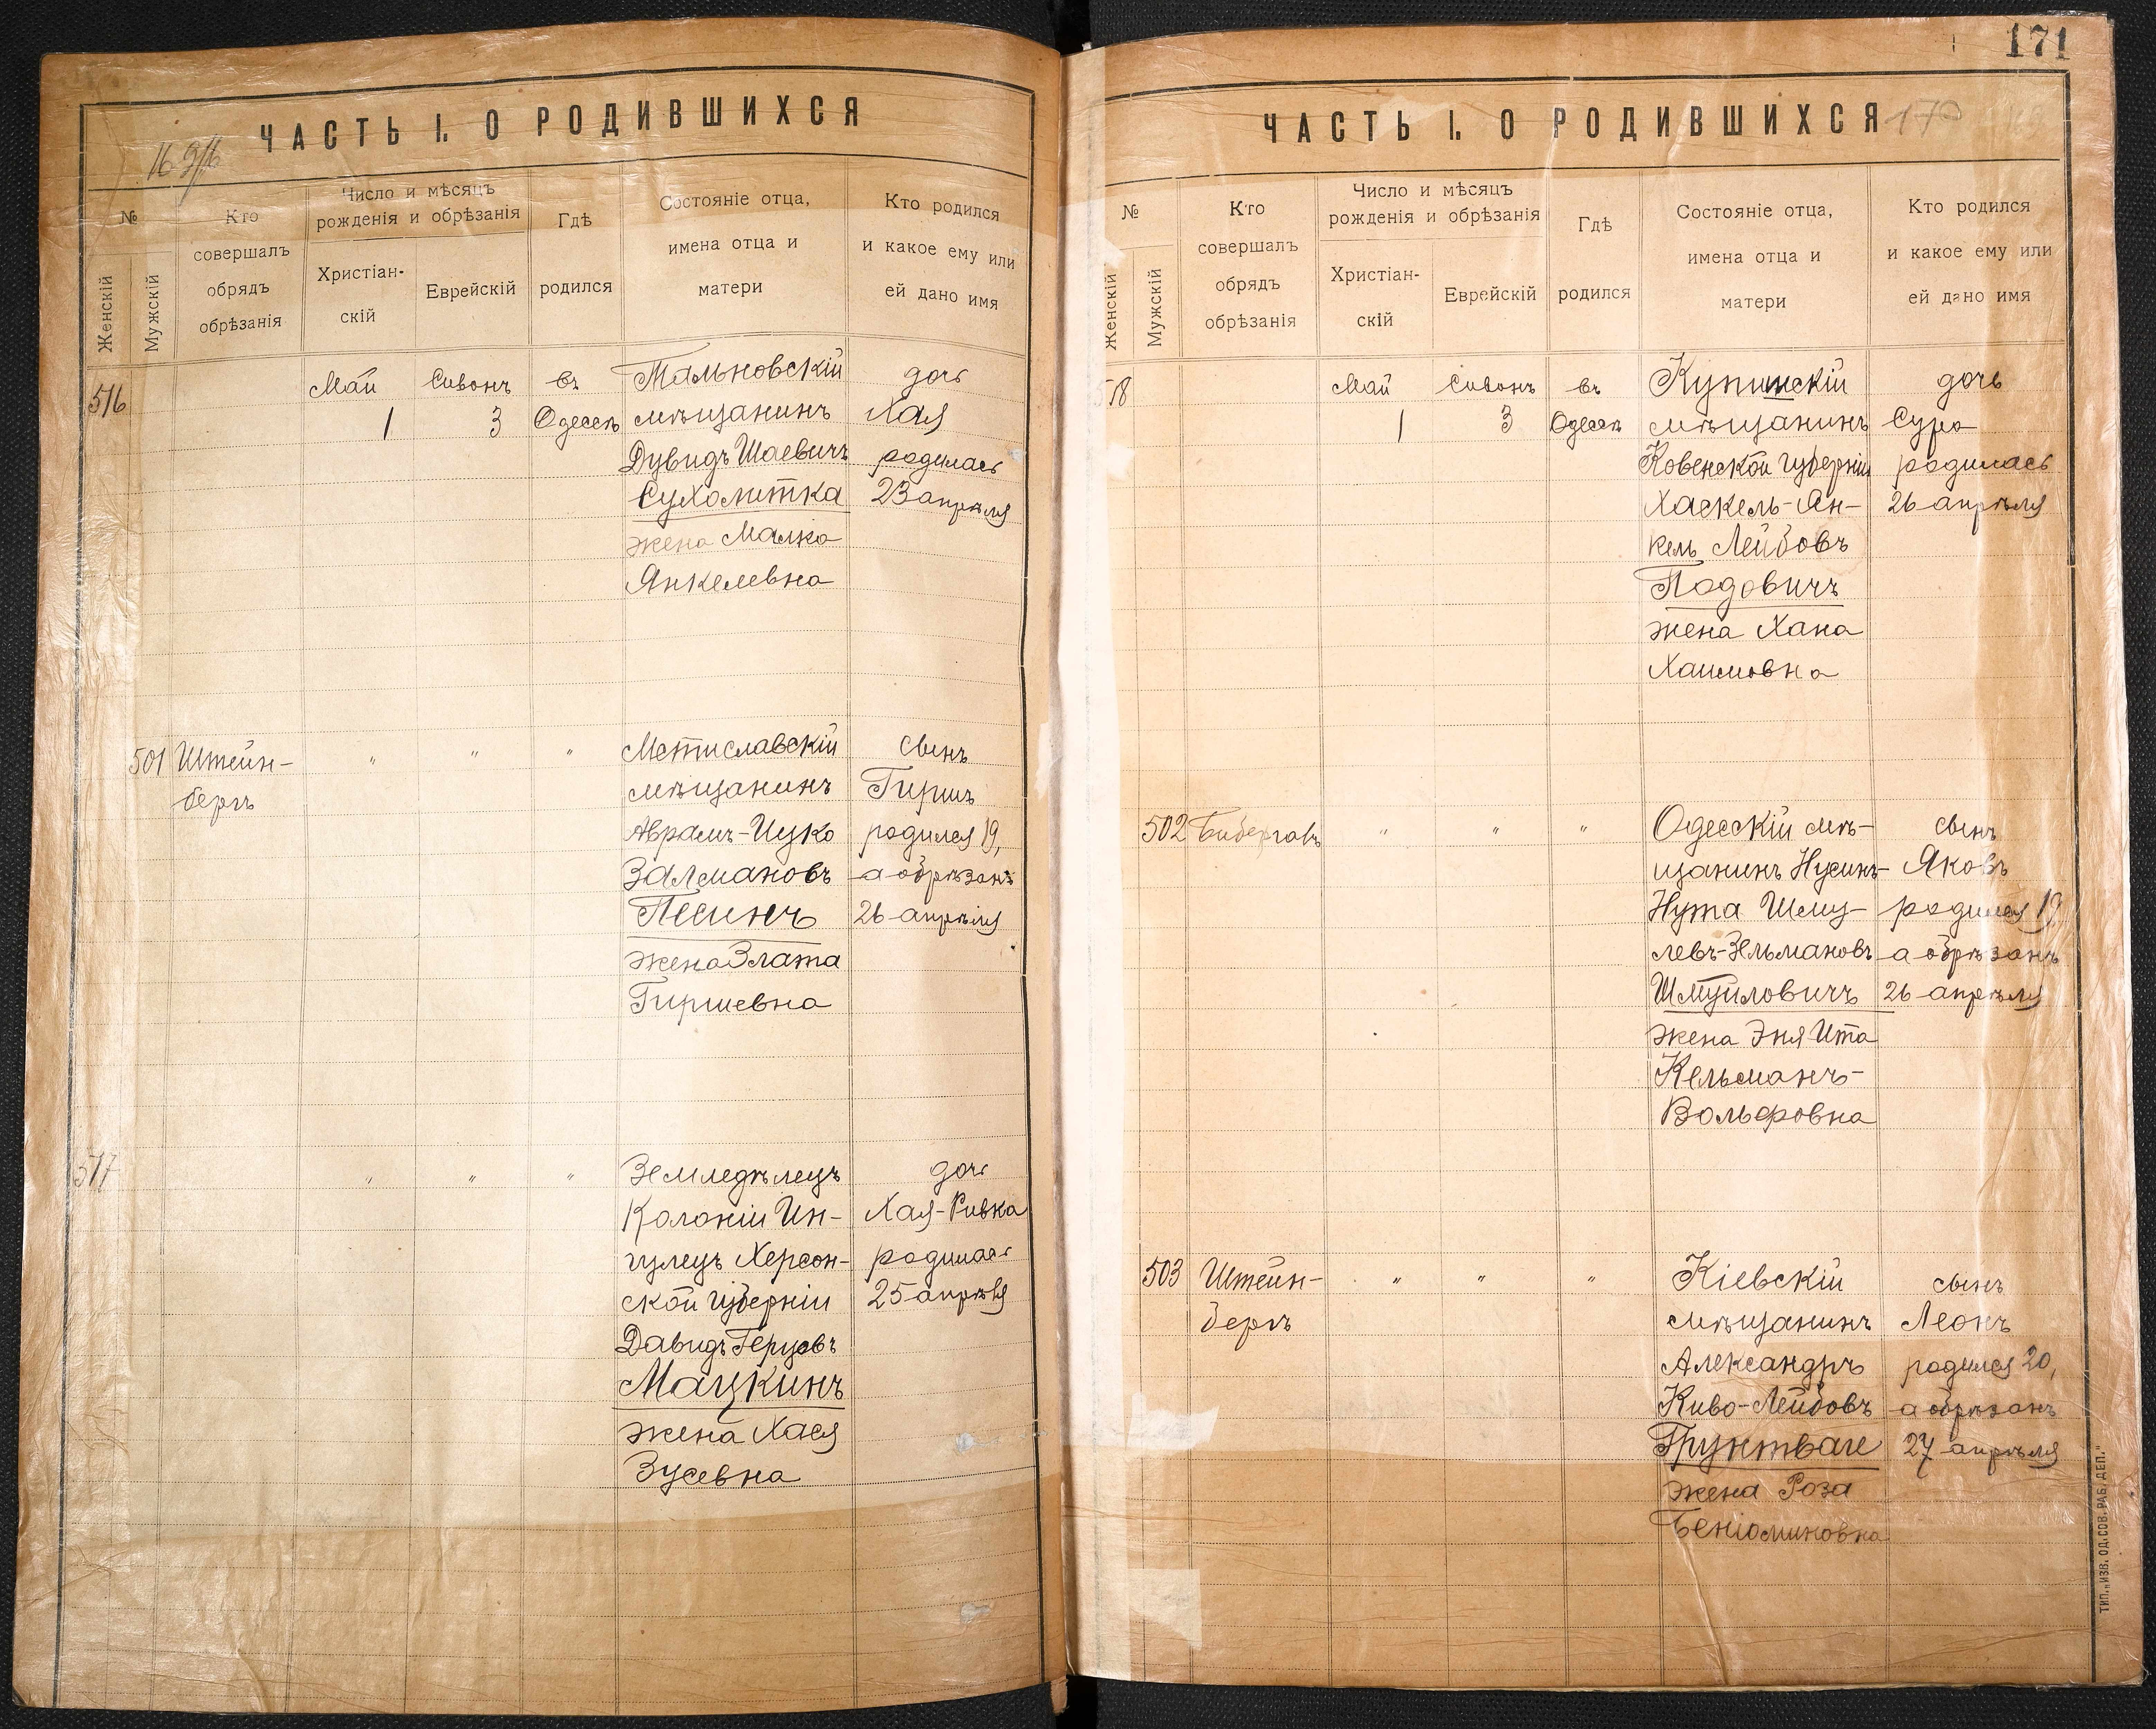 ЧАСТЬ I. О РОДИВШИХСЯ
№
Женскій
Мужскій
Кто
совершалъ
обрядъ
обрѣзанія
Число и мѣсяцъ
рожденія и обрѣзанія
Христіан-
скій
Еврейскій
Гдѣ
родился
Состояніе отца,
имена отца и
матери
Кто родился
и какое ему или
ей дано имя
516
Май
1
Сивонъ
3
въ
Одессѣ
Тальновскій
мѣщанинъ
Дувидъ Шаевичъ
Сухолитка
жена Малка
Янкелевна
дочь
Хая
родилась
23 апрѣля
501
Штейн-
бергъ
" " "
Мстиславскій
мѣщанинъ
Аврамъ-Ицко
Залмановъ
Песинъ
жена Злата
Гиршевна
сынъ
Гиршъ
родился 19,
а обрѣзанъ
26 апрѣля
517
" " "
Земледѣлецъ
Колоніи Ин-
гулецъ Херсон-
ской губерніи
Давидъ Герцовъ
Мацкинъ
жена Хася
Зусевна
дочь
Хая-Ривка
родилась
25 апрѣля
171
ЧАСТЬ I. О РОДИВШИХСЯ
170
№
Женскій
Мужскій
Кто
совершалъ
обрядъ
обрѣзанія
Число и мѣсяцъ
рожденія и обрѣзанія
Христіан-
скій
Еврейскій
Гдѣ
родился
Состояніе отца,
имена отца и
матери
Кто родился
и какое ему или
ей дано имя
518
Май
1
Сивонъ
3
въ
Одессѣ
мѣщанинъ
Ковенской губерніи
Хаскель-Ян-
кель Лейбовъ
Подовичъ
жена Хана
Хаимовна
дочь
Сура
родилась
26 апрѣля
502
" " "
Одесскій мѣ-
щанинъ Нусинъ-
Нута Шму-
левъ-Зельмановъ
Шмуйловичъ
жена Эня Ита
Кельманъ-
Вольфовна
сынъ
Яковъ
родился 19,
а обрѣзанъ
26 апрѣля
503
Штейн-
бергъ
" " "
Кіевскій
мѣщанинъ
Александръ
Киво-Лейбовъ
жена Роза
Беніоминовна
сынъ
Леонъ
родился 20,
а обрѣзанъ
27 апрѣля
ТИП. „ИЗВ. ОД. СОВ. РАБ. ДЕП."